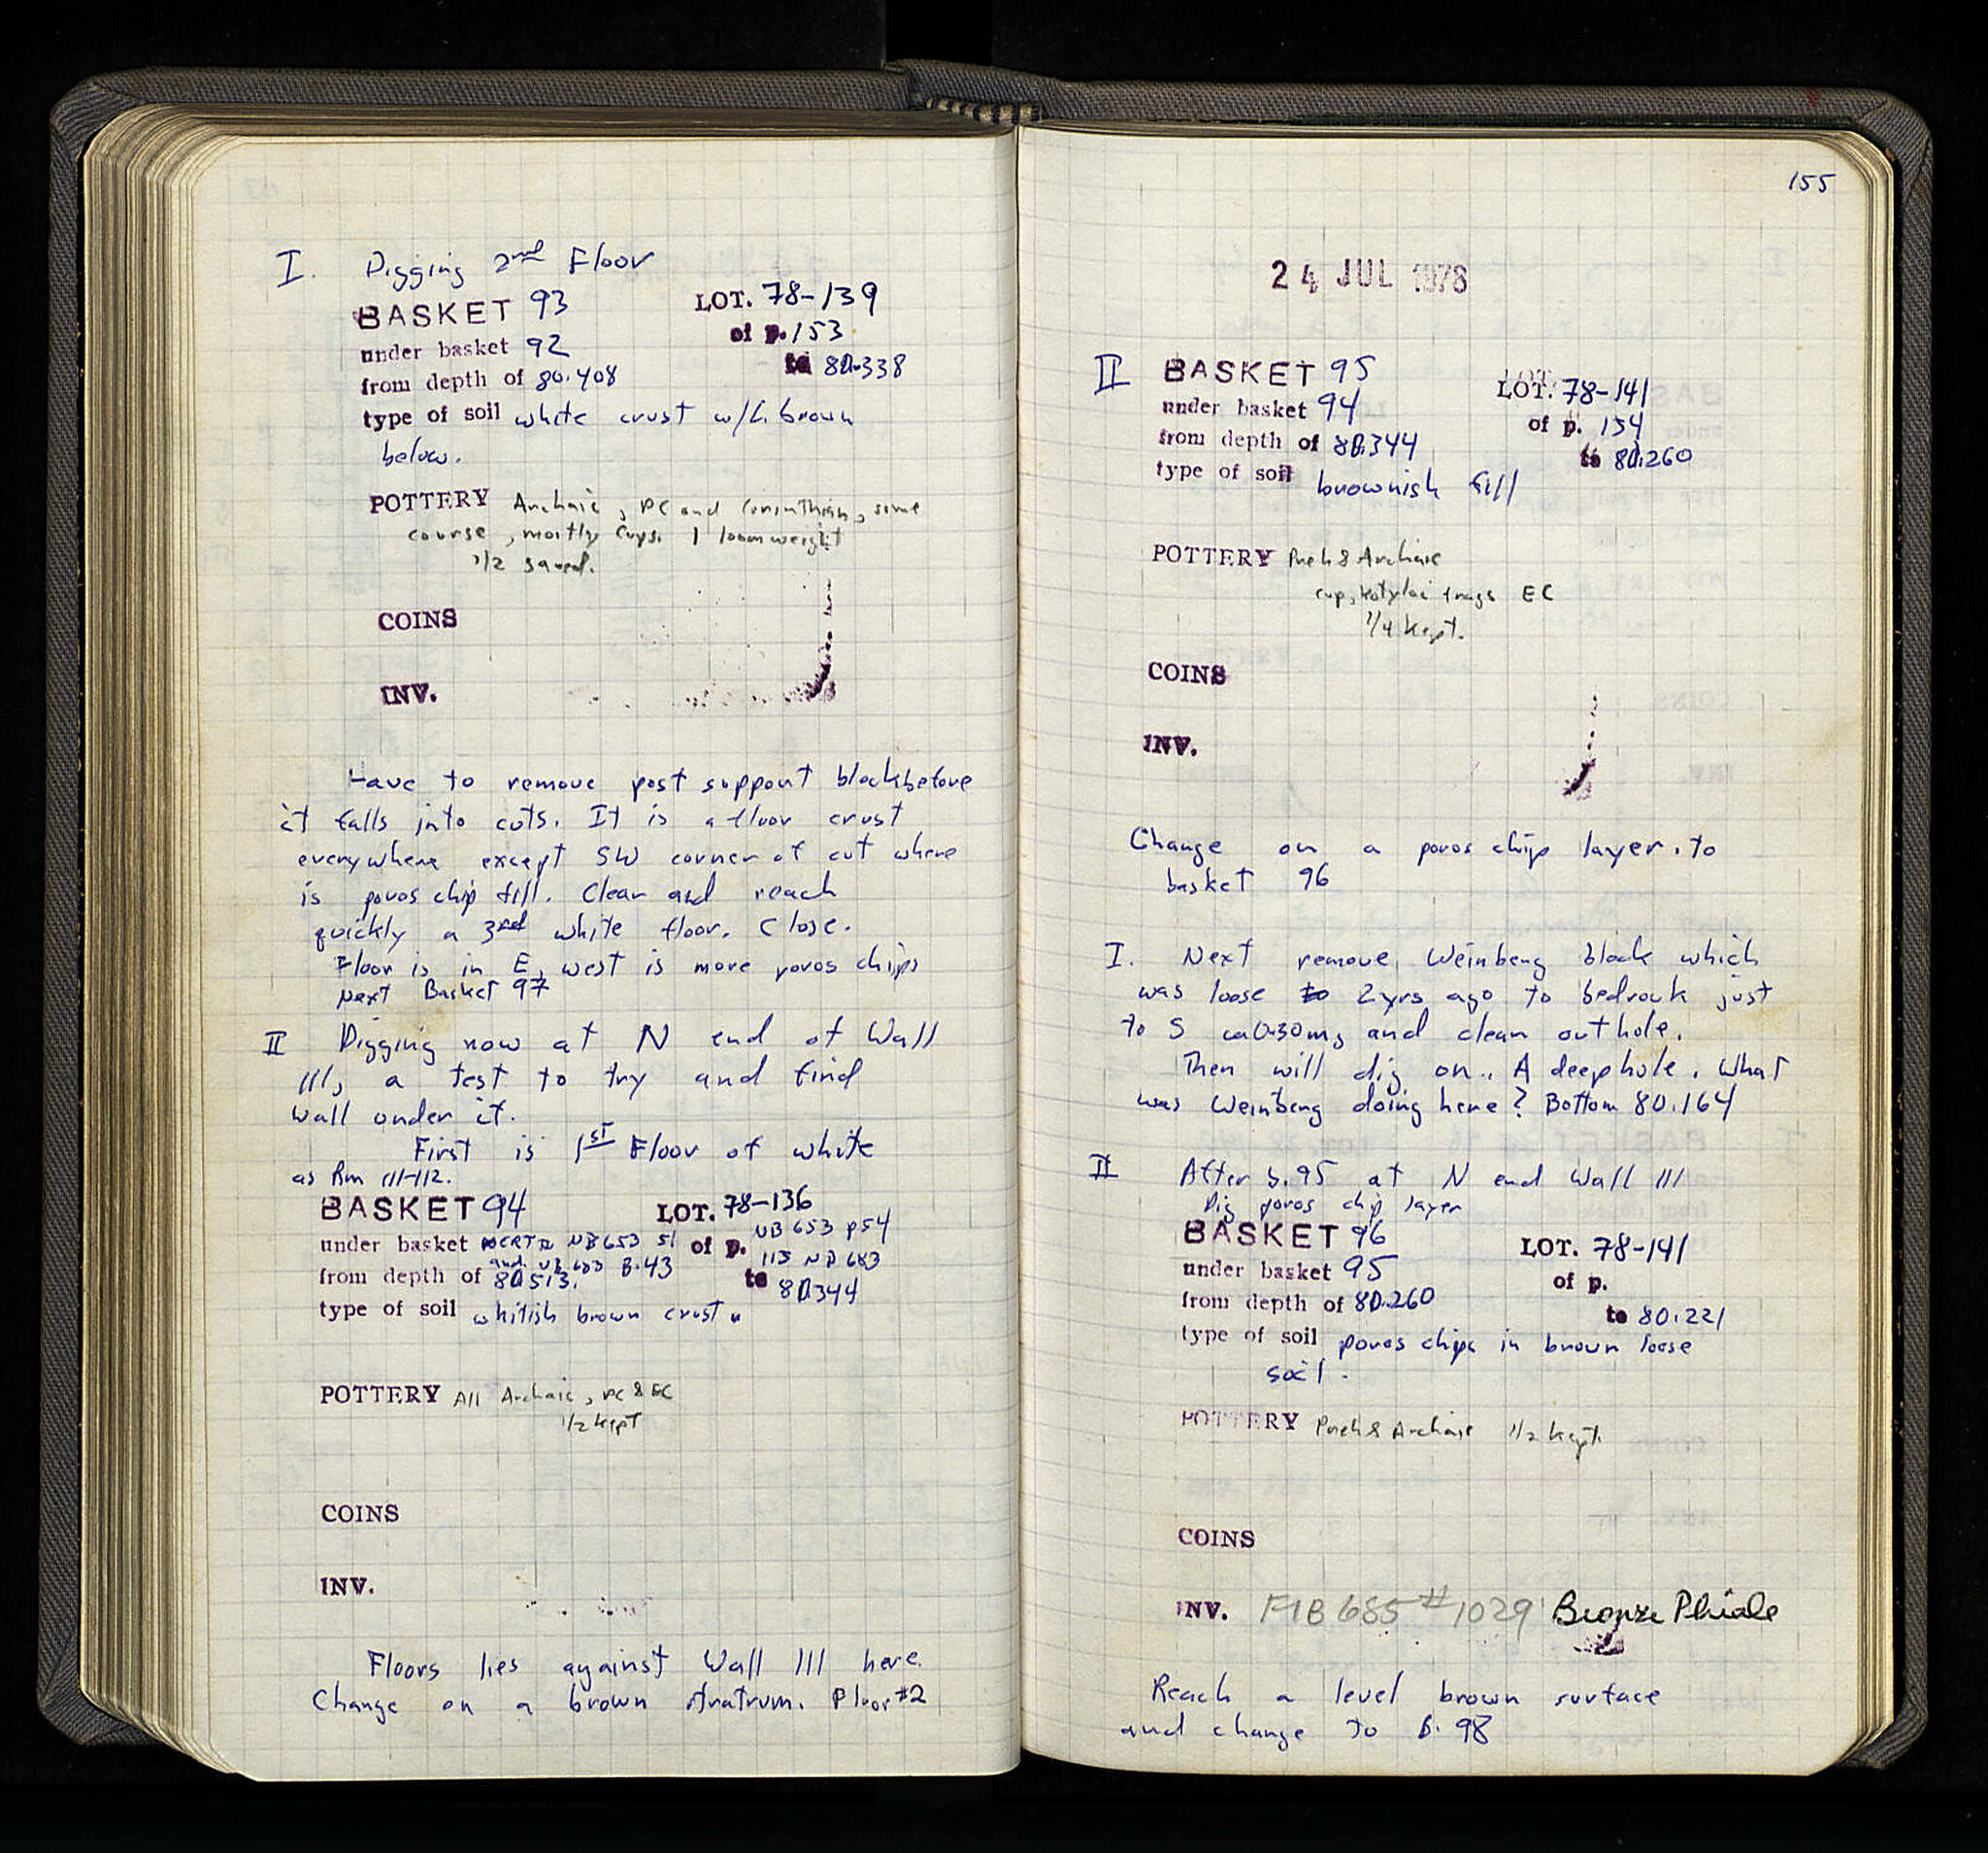 I. Digging 2nd Floor
BASKET 93 LOT. 78-139
under basket 92 of p. 153
from depth of 80.408 to 80.338
type of soil white crust w/ brown
below.
POTTERY Archaic, PC and Corinthian, some
course, mostly cups. 1 loomweight
1/2 saved.
COINS
INV.
Have to remove post support block before
it falls into cuts. It is a floor crust
everywhere except SW corner of cut where
is poros chip fill. Clear and reach
quickly a 3rd white floor. Close.
Floor is in E, west is more poros chips
Next Basket 97
II Digging now at N end of Wall
111, a test to try and find
wall under it.
First is 1st Floor of white
as Rm 111-112.
BASKET 94 LOT. 78-136
under basket NB653 51 of p. NB 653 p54
and NB 683 B.43 113 NB 683
from depth of 80.513. to 80.344
type of soil whitish brown crust.
POTTERY All Archaic, PC & EC
1/2 kept
COINS
INV.
Floors lies against Wall 111 here.
Change on a brown stratum. Floor #2
155
24 JUL 1978
II BASKET 95 LOT. 78-141
under basket 94 of p. 154
from depth of 80.344 to 80.260
type of soil brownish fill
POTTERY Preh & Archaic
cup, kotylai frags EC
1/4 kept.
COINS
INV.
Change on a poros chip layer. to
basket 96
I. Next remove Weinberg block which
was loose to 2 yrs ago to bedrock just
to S ca 0.30m, and clean out hole.
Then will dig on. A deep hole. What
was Weinberg doing here? Bottom 80.164
II After b.95 at N end Wall 111
Dig poros chip layer
BASKET 96 LOT. 78-141
under basket 95 of p.
from depth of 80.260 to 80.221
type of soil poros chips in brown loose
soil.
POTTERY Preh & Archaic 1/2 kept.
COINS
INV. FIB 685 #1029 Bronze Phiale
Reach a level brown surface
and change to B. 98